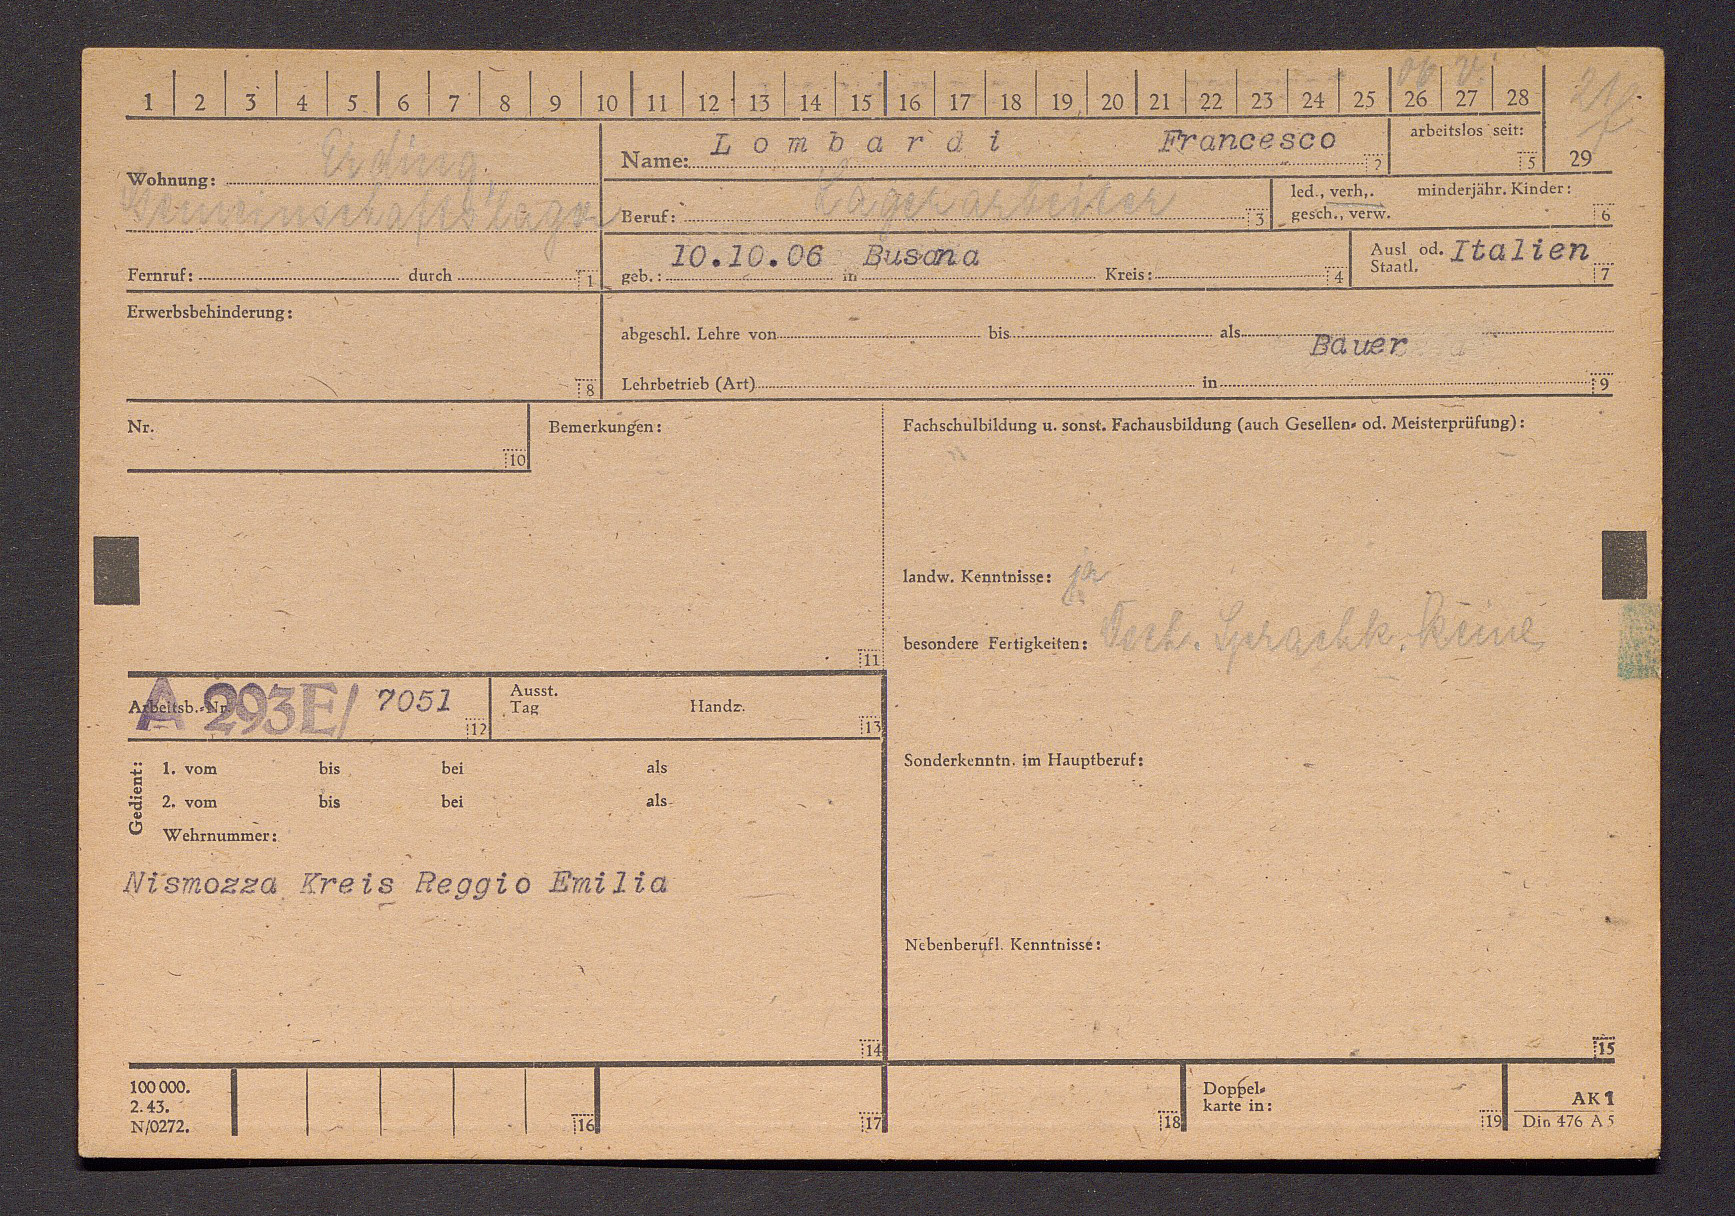 1 2 3 4 5 6 7 8 9 10 11 12 13 14 15 16 17 18 19 20 21 22 23 24 25 26 27 28 29
Wohnung: Erding
Gemeinschaftslager
Fernruf: durch 1
Name: Lombardi Francesco 2
arbeitslos seit: 5
Beruf: Lagerarbeiter 3
led., verh,. minderjähr. Kinder:
gesch., verw. 6
geb.: 10.10.06 in Busana Kreis: 4
Ausl od. Italien
Staatl. 7
Erwerbsbehinderung:
8
abgeschl. Lehre von bis als
Bauer
Lehrbetrieb (Art) in 9
Nr.
10
Bemerkungen:
11
Fachschulbildung u. sonst. Fachausbildung (auch Gesellen- od. Meisterprüfung):
landw. Kenntnisse: ja
besondere Fertigkeiten: Sprachk. keine
Arbeitsb.-Nr. A 293E/ 7051 12
Ausst.
Tag Handz. 13
Gedient:
1. vom bis bei als
2. vom bis bei als
Wehrnummer:
Nismozza Kreis Reggio Emilia
14
Sonderkenntn. im Hauptberuf:
Nebenberufl. Kenntnisse:
15
100 000.
2. 43.
N/0272.
16
17
18
Doppel-
karte in: 19
AK 1
Din 476 A 5